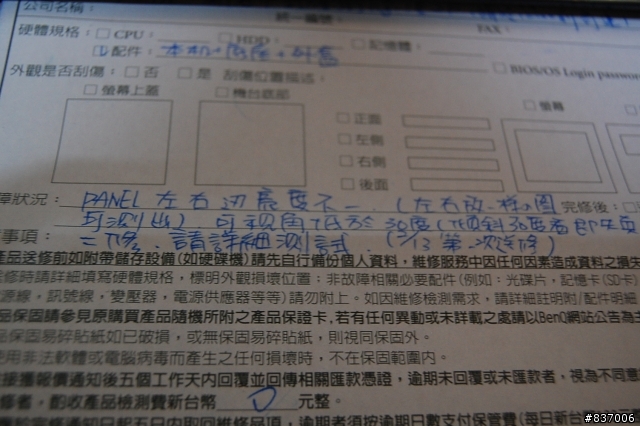 公司名稱：
統一編號： FAX：
硬體規格：□ CPU： □ HDD： □ 記憶體：
□ 配件：本机+ □ BIOS/OS Login passwor
外觀是否刮傷：□ 否 □ 是 刮傷位置描述：
□ 螢幕上蓋 □ 機台底部 □ 螢幕
□ 正面
□ 左側
□ 右側
□ 後面
障狀況：PANEL 左右 不一 (左右放一樣的圖 完修後：
可測出) 可視角低於30度(傾斜30度看即失真
事項：二修. 請詳細測試. (5/13第一次送修)
產品送修前如附帶儲存設備(如硬碟機)請先自行備份個人資料，維修服務中因任何因素造成資料之損失
修時請詳細填寫硬體規格，標明外觀損壞位置；非故障相關必要配件(例如：光碟片，記憶卡(SD卡)
源線，訊號線，變壓器，電源供應器等等)請勿附上。如因維修檢測需求，請詳細註明附/配件明細
品保固請參見原購買產品隨機所附之產品保證卡，若有任何異動或未詳載之處請以BenQ網站公告為主
品保固易碎貼紙如已破損，或無保固易碎貼紙，則視同保固外。
使用非法軟體或電腦病毒而產生之任何損壞時，不在保固範圍內。
接獲報價通知後五個工作天內回覆並回傳相關匯款憑證，逾期未回覆或未匯款者，視為不同意
修者，酌收產品檢測費新台幣 0 元整。
完修通知日起五日內取回維修品項，逾期者須按逾期日數支付保管費(每日新台
#837006